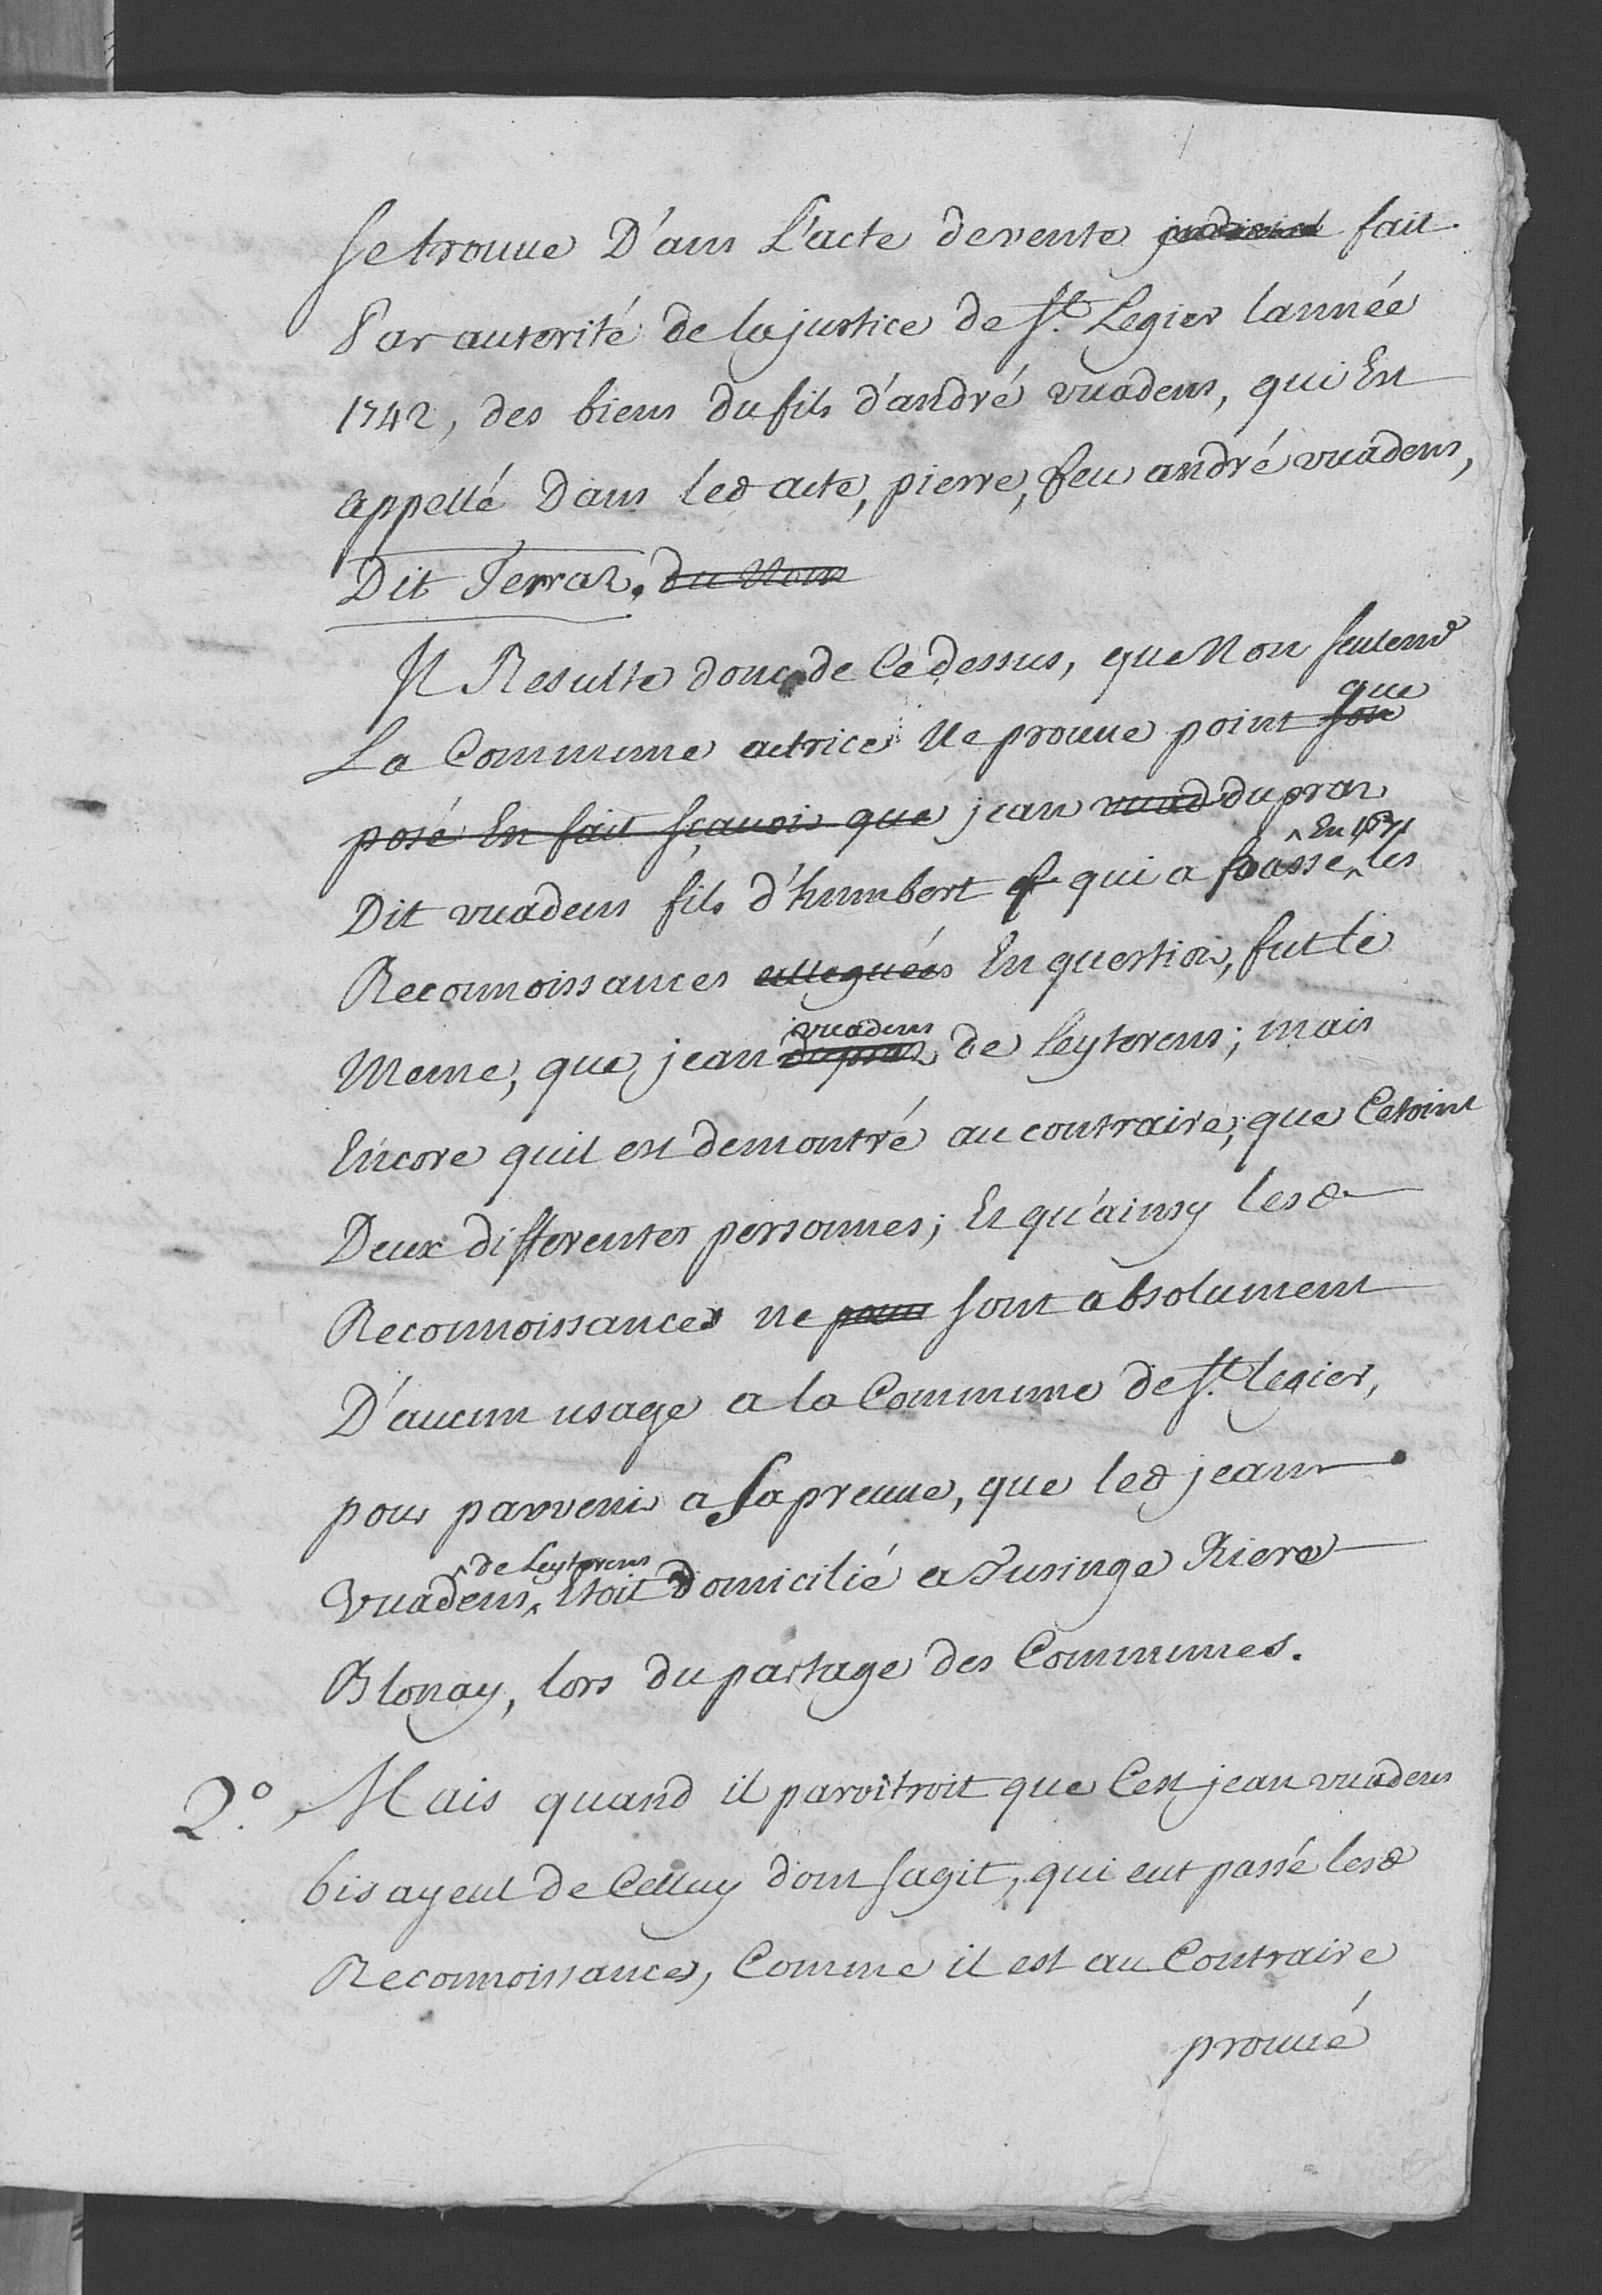 Se trouve D'ans L'acte de vente judicial fait
Par autorité de la justice de St. Legier lannée
1742, des biens du fils d'andré vuadens, qui Est
appellé Dans led acte, pierre, feu andré vuadens,
Dit Terraz. du Nom
Il Resulte donc de Ce dessus, que Non seulemt
que
La Commune actrice Ne prouve point son
posé En fait sçavoir que jean vuad dupraz
En
Dit vuadens fils d'humbert qui a passé les
Reconnoissances alleguées En question, fut le
vuadens
Meme, que jean dupraz de Leytorens; mais
Encore quil est demontré au contraire, que Cetoint
Deux differentes personnes; Et qu'ainsy lesd
Reconnoissances ne pour sont absolument
D'aucun usage a la Commune de St. legier,
pour parvenir a Sa preuve, que led jean
de Leytorens
Vuadens, Etoit domicilié a Tusinge Riere
Blonay, lors du partage des Communes.
2.° Mais quand il paroîtroit que Cest jean vuadens
bisayeul de Celluy dont sagit, qui eut passé lesd
Reconnoissances, Comme il est au Contraire
prouvé